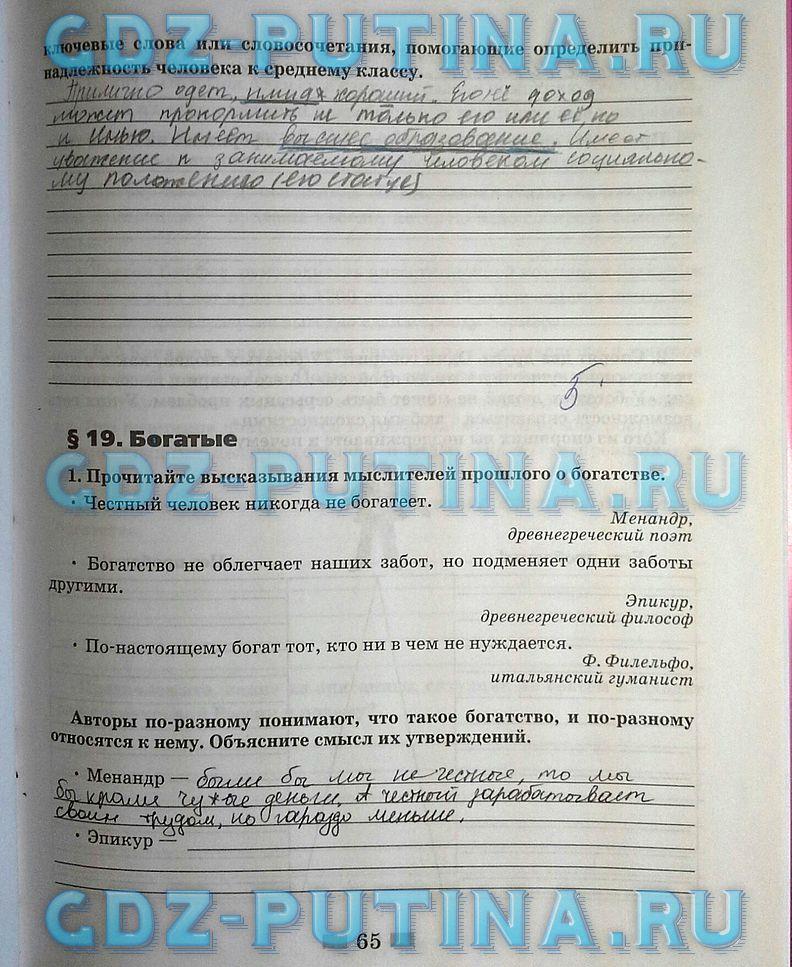 GDZ-PUTINA.RU
ключевые слова или словосочетания, помогающие определить при-
надлежность человека к среднему классу.
Прилично одет, имидж хороший. Его доход
может прокормить не только его или её, но
и семью. Имеет высшее образование. Имеет
уважение к занимаемому человеком социально-
му положению (его статус)
5
§ 19. Богатые
1. Прочитайте высказывания мыслителей прошлого о богатстве.
GDZ-PUTINA.RU
• Честный человек никогда не богатеет.
Менандр,
древнегреческий поэт
• Богатство не облегчает наших забот, но подменяет одни заботы
другими.
Эпикур,
древнегреческий философ
• По-настоящему богат тот, кто ни в чем не нуждается.
Ф. Филельфо,
итальянский гуманист
Авторы по-разному понимают, что такое богатство, и по-разному
относятся к нему. Объясните смысл их утверждений.
• Менандр — были бы мы не честные, то мы
бы крали чужые деньги, а честный зарабатывает
своим трудом, но гараздо меньше.
• Эпикур —
GDZ-PUTINA.RU
65